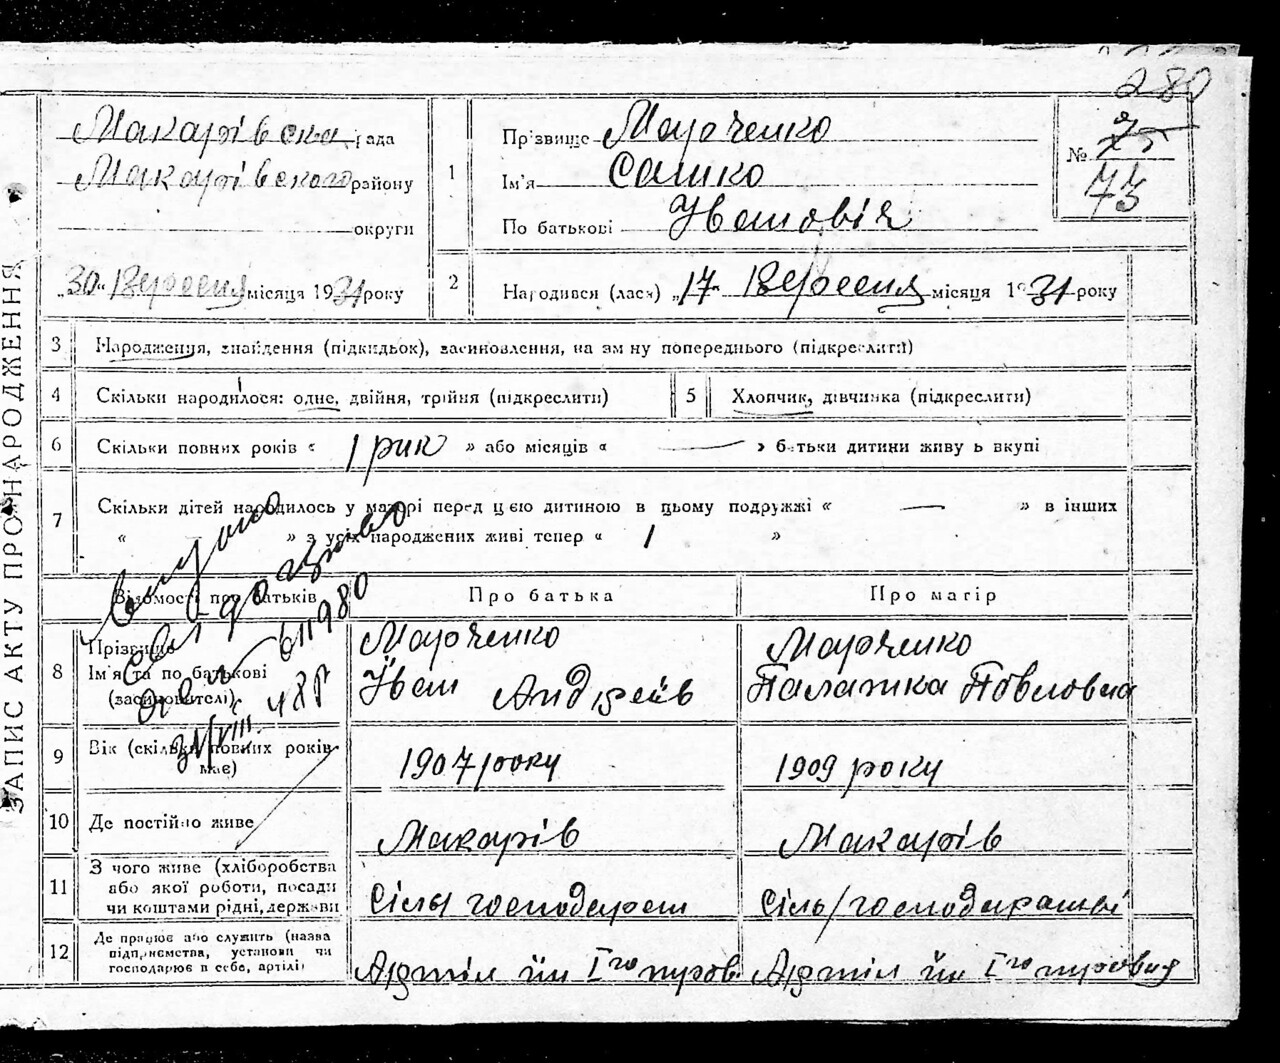 280
ЗАПИС АКТУ ПРО НАРОДЖЕННЯ
Макарівска рада
Макарівского району
округи
„30“ Вересня місяця 1931 року
1
Прізвище Марченко
Ім'я Сашко
По батькові Іванович
№ 75
73
2
Народився (лася) „17“ Вересня місяця 1931 року
3 Народження, знайдення (підкидьок), засиновлення, на зміну попереднього (підкреслити)
4 Скільки народилося: одне, двійня, трійня (підкреслити)
5 Хлопчик, дівчинка (підкреслити)
6 Скільки повних років « 1 рик » або місяців « — » батьки дитини живуть вкупі
7 Скільки дітей народилось у матері перед цією дитиною в цьому подружжі « — » в інших
« » з усіх народжених живі тепер « 1 »
Відомості про батьків
Про батька
Про матір
8 Прізвище
Ім'я та по батькові
(засиновителі)
Марченко
Іван Андріїв
Марченко
Палажка Повловна
611980
31/VIII
9 Вік (скільки повних років має)
1907 року
1909 року
10 Де постійно живе
Макарів
Макарів
11 З чого живе (хліборобства
або якої роботи, посади
чи коштами рідні, держави
Сільгосподарст
Сіль/господарства
12 Де працює або служить (назва
підприємства, установи чи
господарює в себе, артілі)
Артіл
Артіл